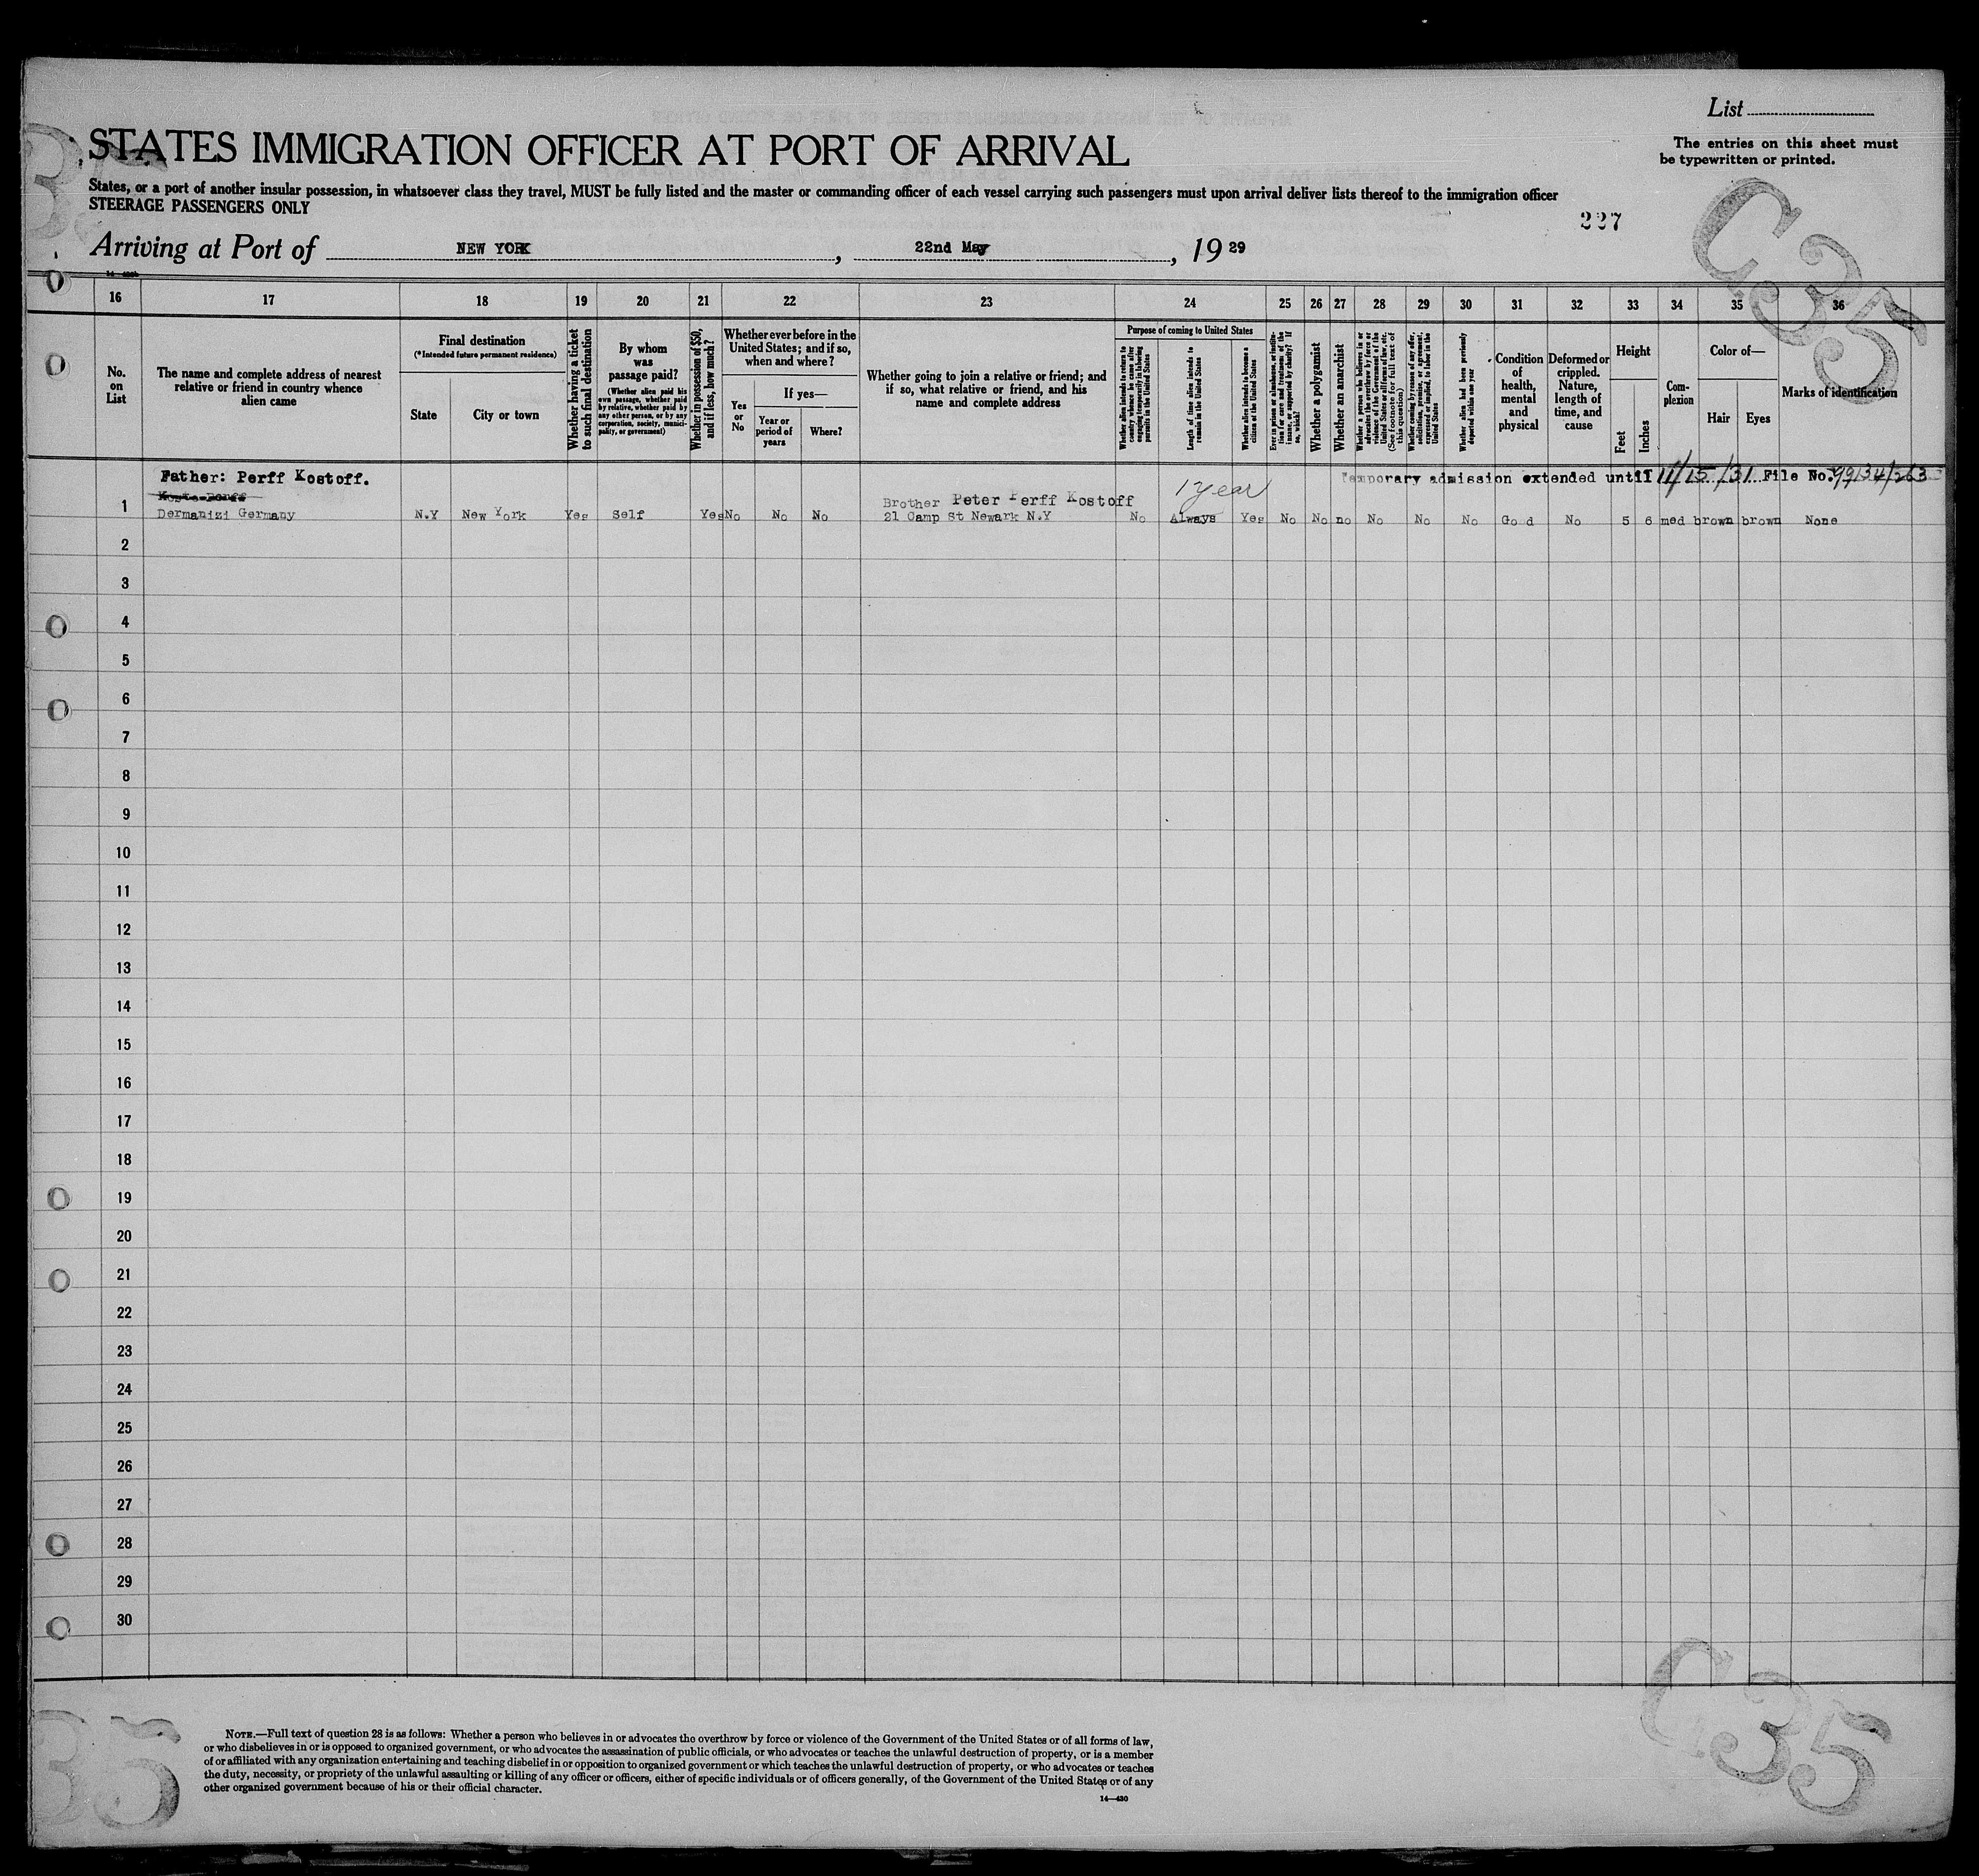 List
STATES IMMIGRATION OFFICER AT PORT OF ARRIVAL
The entries on this sheet must
be typewritten or printed.
States, or a port of another insular possession, in whatsoever class they travel, MUST be fully listed and the master or commanding officer of each vessel carrying such passengers must upon arrival deliver lists thereof to the immigration officer
STEERAGE PASSENGERS ONLY
227
C35
Arriving at Port of NEW YORK, 22nd May, 1929
16 17 18 19 20 21 22 23 24 25 26 27 28 29 30 31 32 33 34 35 36
No. on List
The name and complete address of nearest relative or friend in country whence alien came
Final destination
(*Intended future permanent residence)
State
City or town
Whether having a ticket to such final destination
By whom was passage paid?
(Whether alien paid his own passage, whether paid by relative, whether paid by any other person, or by any corporation, society, municipality, or government)
Whether in possession of $50, and if less, how much?
Whether ever before in the United States; and if so, when and where?
Yes or No
If yes—
Year or period of years
Where?
Whether going to join a relative or friend; and if so, what relative or friend, and his name and complete address
Purpose of coming to United States
Whether alien intends to return to country whence he came after engaging temporarily in laboring pursuits in the United States
Length of time alien intends to remain in the United States
Whether alien intends to become a citizen of the United States
Ever in prison or almshouse, or institution for care and treatment of the insane, or supported by charity? If so, which?
Whether a polygamist
Whether an anarchist
Whether a person who believes in or advocates the overthrow by force or violence of the Government of the United States or all forms of law, etc. (See footnote for full text of this question)
Whether coming by reason of any offer, solicitation, promise, or agreement, expressed or implied, to labor in the United States
Whether alien had been previously deported within one year
Condition of health, mental and physical
Deformed or crippled. Nature, length of time, and cause
Height
Feet
Inches
Com-plexion
Color of—
Hair
Eyes
Marks of identification
Father: Perff Kostoff.
Temporary admission extended until 11/15/31 File No. 99134/263
1 year
1
Brother Peter Perff Kostoff
Dermanizi Germany N.Y New York Yes Self Yes No No No 21 Camp St Newark N.Y No Always Yes No No no No No No Good No 5 6 med brown brown None
2
3
4
5
6
7
8
9
10
11
12
13
14
15
16
17
18
19
20
21
22
23
24
25
26
27
28
29
30
C35
35
NOTE.—Full text of question 28 is as follows: Whether a person who believes in or advocates the overthrow by force or violence of the Government of the United States or of all forms of law,
or who disbelieves in or is opposed to organized government, or who advocates the assassination of public officials, or who advocates or teaches the unlawful destruction of property, or is a member
of or affiliated with any organization entertaining and teaching disbelief in or opposition to organized government or which teaches the unlawful destruction of property, or who advocates or teaches
the duty, necessity, or propriety of the unlawful assaulting or killing of any officer or officers, either of specific individuals or of officers generally, of the Government of the United States or of any
other organized government because of his or their official character.
14—430